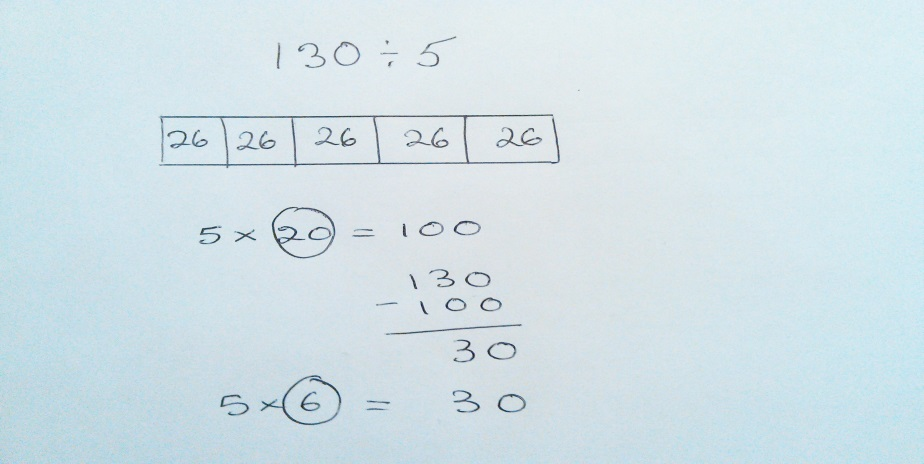 130 ÷ 5
26 26 26 26 26
5 × 20 = 100
130
- 100
30
5 × 6 = 30